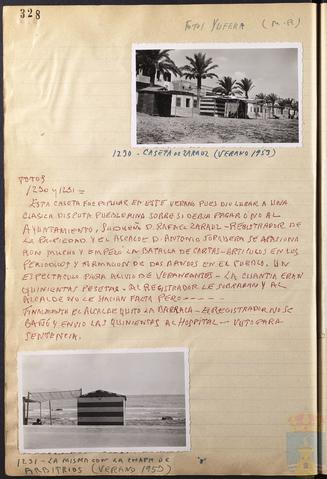 328
FOTOS YUFERA (M-A)
1230 - CASETA DE ZARAUZ (VERANO 1953)
FOTOS
1230 Y 1231 =
ESTA CASETA FUE POPULAR EN ESTE VERANO PUES DIO LUGAR A UNA
CLASICA DISPUTA PUEBLERINA SOBRE SI DEBIA PAGAR O NO AL
AYUNTAMIENTO, SU DUEÑO D. RAFAEL ZARAUZ - REGISTRADOR DE
LA PROPIEDAD Y EL ALCALDE D. ANTONIO SE APASIONA
RON MUCHO Y EMPEZO LA BATALLA DE CARTAS - ARTICULOS EN LOS
PERIODICOS Y FORMACION DE DOS BANDOS EN EL PUEBLO. UN
ESPECTACULO PARA ALIVIO DE VERANEANTES - LA CUANTIA ERAN
QUINIENTAS PESETAS. AL REGISTRADOR LE SOBRABAN Y AL
ALCALDE NO LE HACIAN FALTA PERO -----
FINALMENTE EL ALCALDE QUITO LA BARRACA - EL REGISTRADOR NO SE
BAÑO Y ENVIO LAS QUINIENTAS AL HOSPITAL - PARA
SENTENCIA.
1231 - LA MISMA CON LA CHAPA DE
ARBITRIOS (VERANO 1953)